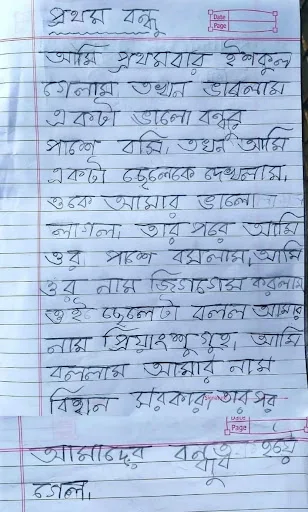 প্রথম বন্ধু
Date
Page
আমি প্রথমবার ইশকুল
গেলাম তখন ভাবলাম
একটা ভালো বন্ধুর
পাশে বসি, তখন আমি
একটা ছেলেকে দেখলাম,
ওকে আমার ভালো
লাগল, তার পরে আমি
ওর পাশে বসলাম, আমি
ওর নাম জিগগেস করলাম
ওই ছেলেটা বলল আমার
নাম প্রিয়াংশু গুহ, আমি
বললাম আমার নাম
বিহান সরকার, তারপর
Date
Page
আমাদের বন্ধুত্ব হয়ে
গেল,